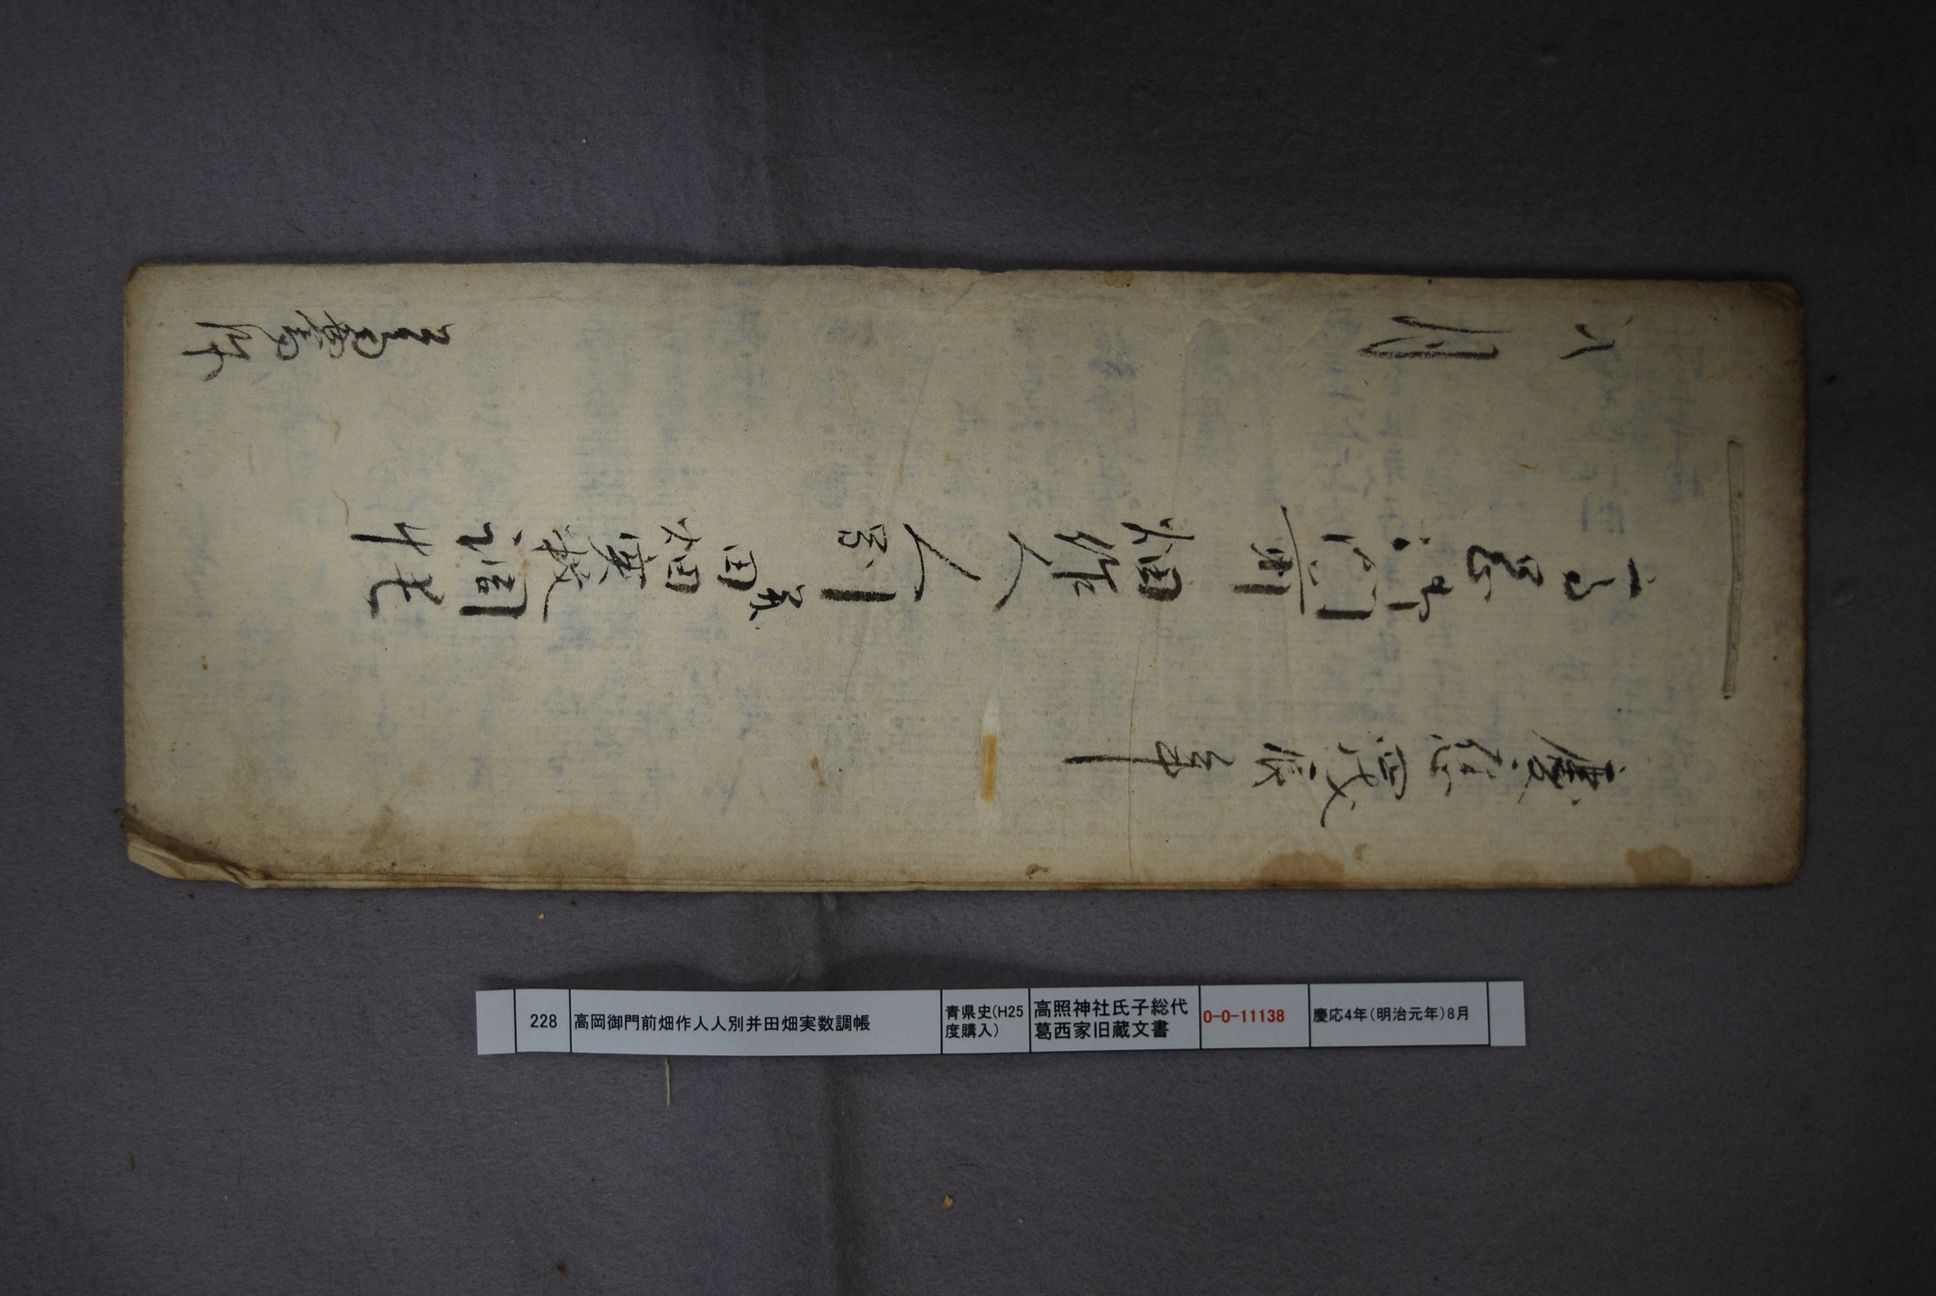 慶応四戊辰年
高岡御門前畑作人人別
并田畑実数調帳
八月
228
高岡御門前畑作人人別并田畑実数調帳
青県史(H25
度購入)
高照神社氏子総代
葛西家旧蔵文書
0-0-11138
慶応4年(明治元年)8月